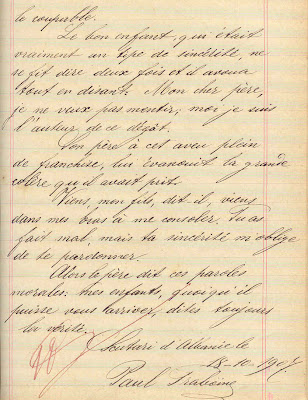 le coupable.
Le bon enfant, qui était
vraiment un type de sincérité, ne
se fit dire deux fois et il avoua
tout en disant: Mon cher père,
je ne veux pas mentir, moi je suis
l'auteur de ce dégât.
Son père à cet aveu plein
de franchise, lui évanouit la grande
colère qu'il avait prit.
Viens, mon fils, dit il, viens
dans mes bras à me consoler. Tu as
fait mal, mais ta sincérité m'oblige
de te pardonner.
Alors le père dit ces paroles
morales: mes enfants, quoiqu'il
puisse vous arriver, dites toujours
la vérité.
Scutari d'Albanie le
18-10-1907
Paul